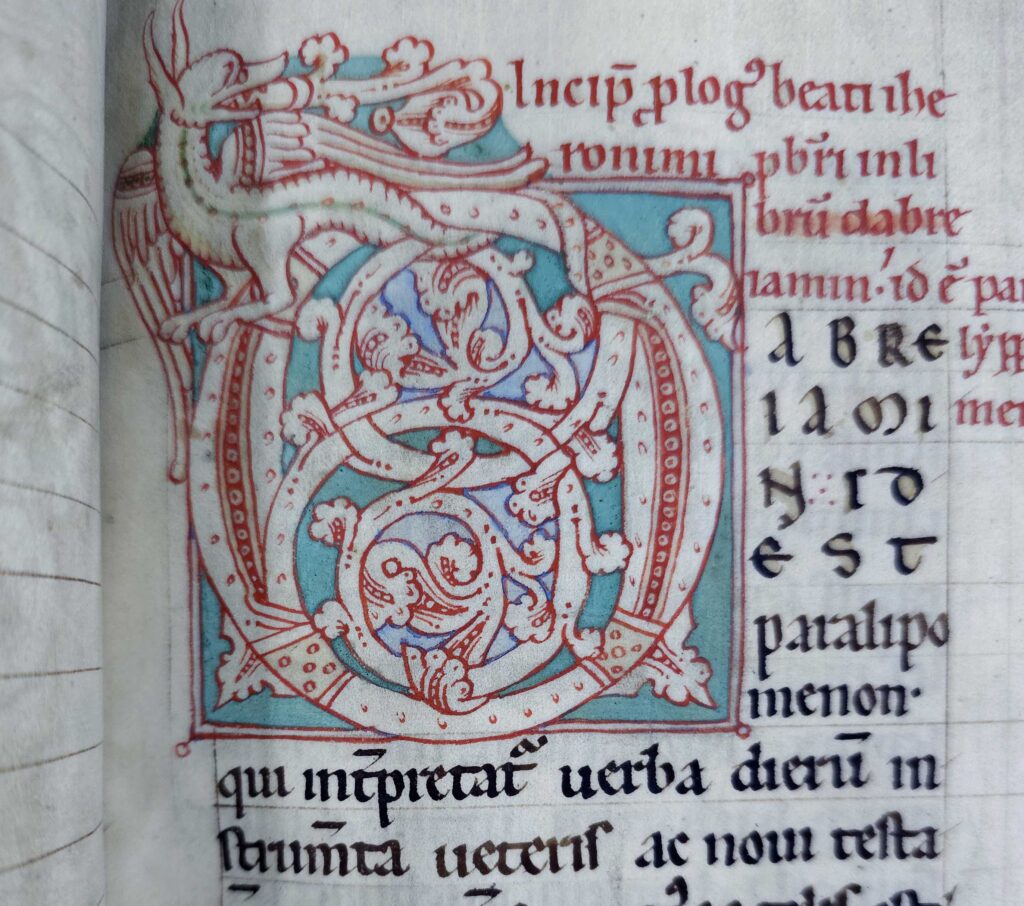 Incip̄ ꝓlogꝰ beati ihe
ronimi pb̄ri in li
brū dabre
iamin · id ē par
ABRE lyp̄p
IAMI men
N ID
EST
paralipo
menon ·
qui int̄pretatᷓ uerba dierū in
strum̄ta ueteris ac noui testa